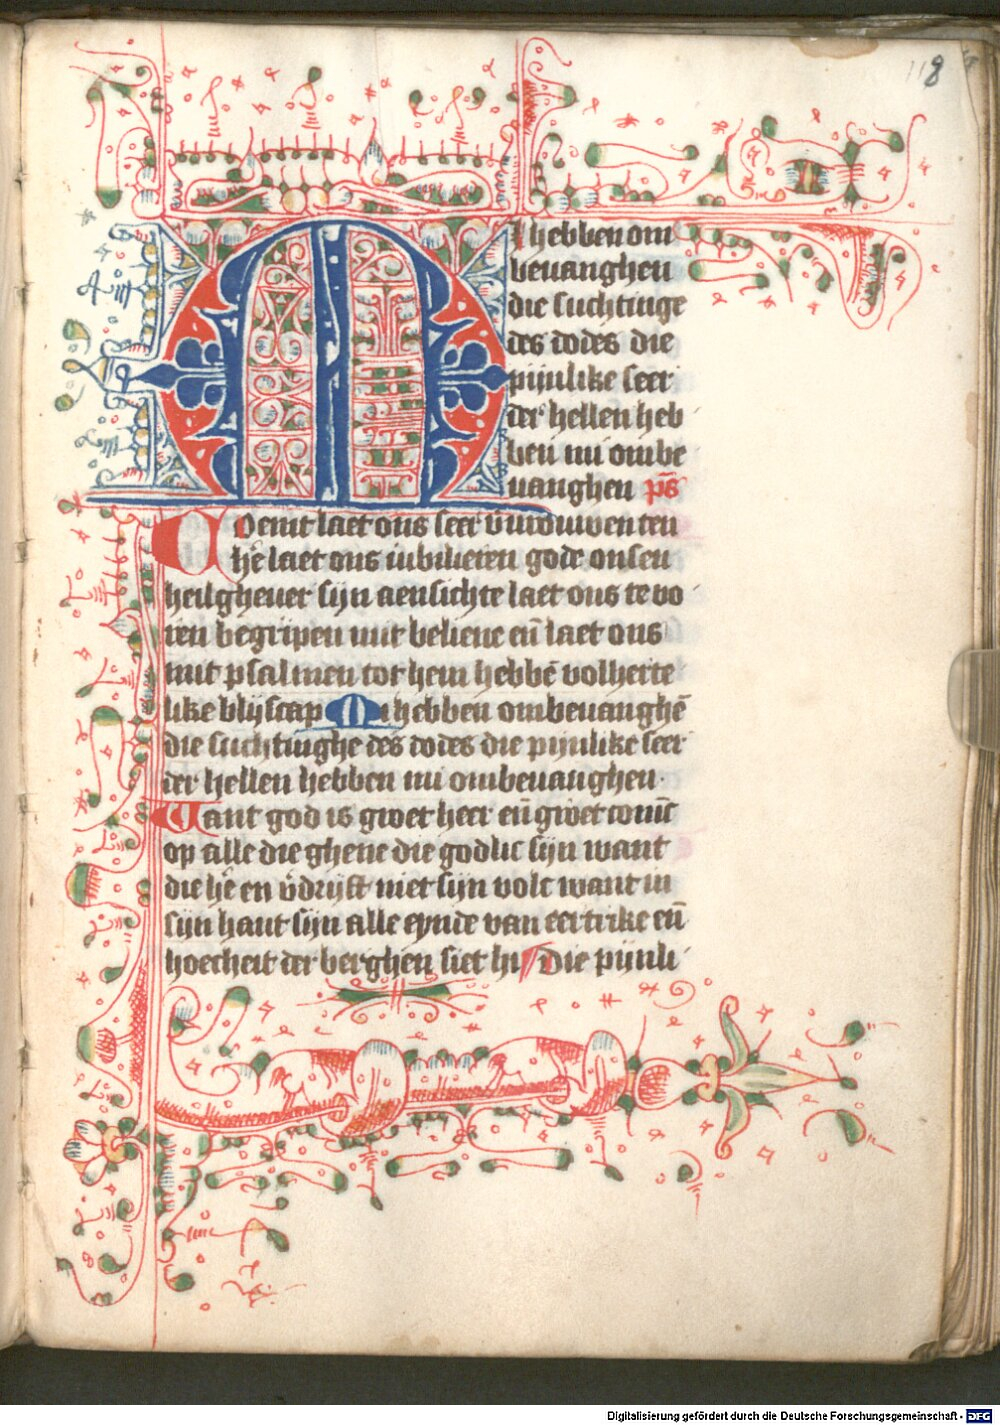 118
MI hebben om
beuanghen
die suchtinge
des dodes die
pijnlike seer
der hellen heb
ben mi ombe
uanghen p̄s
Coemt laet ons seer v̓urouwen ten
h̓e laet ons iubilieren gode onsen
heilgheuer sijn aensichte laet ons te vo
ren begripen mit beliene en̄ laet ons
mit psalmen tot hem hebbē volherte
like blijscap Mi hebben ombeuanghē
die suchtinghe des dodes die pijnlike seer
der hellen hebben mi ombeuanghen
Want god is groet heer en̄ groet coninc
op alle die ghene die godlic sijn want
die h̓e en v̓drijft niet sijn volc want in
sijn hant sijn alle eynde van eertrike en̄
hoecheit der berghen siet hi Die pijnli
Digitalisierung gefördert durch die Deutsche Forschungsgemeinschaft - DFG